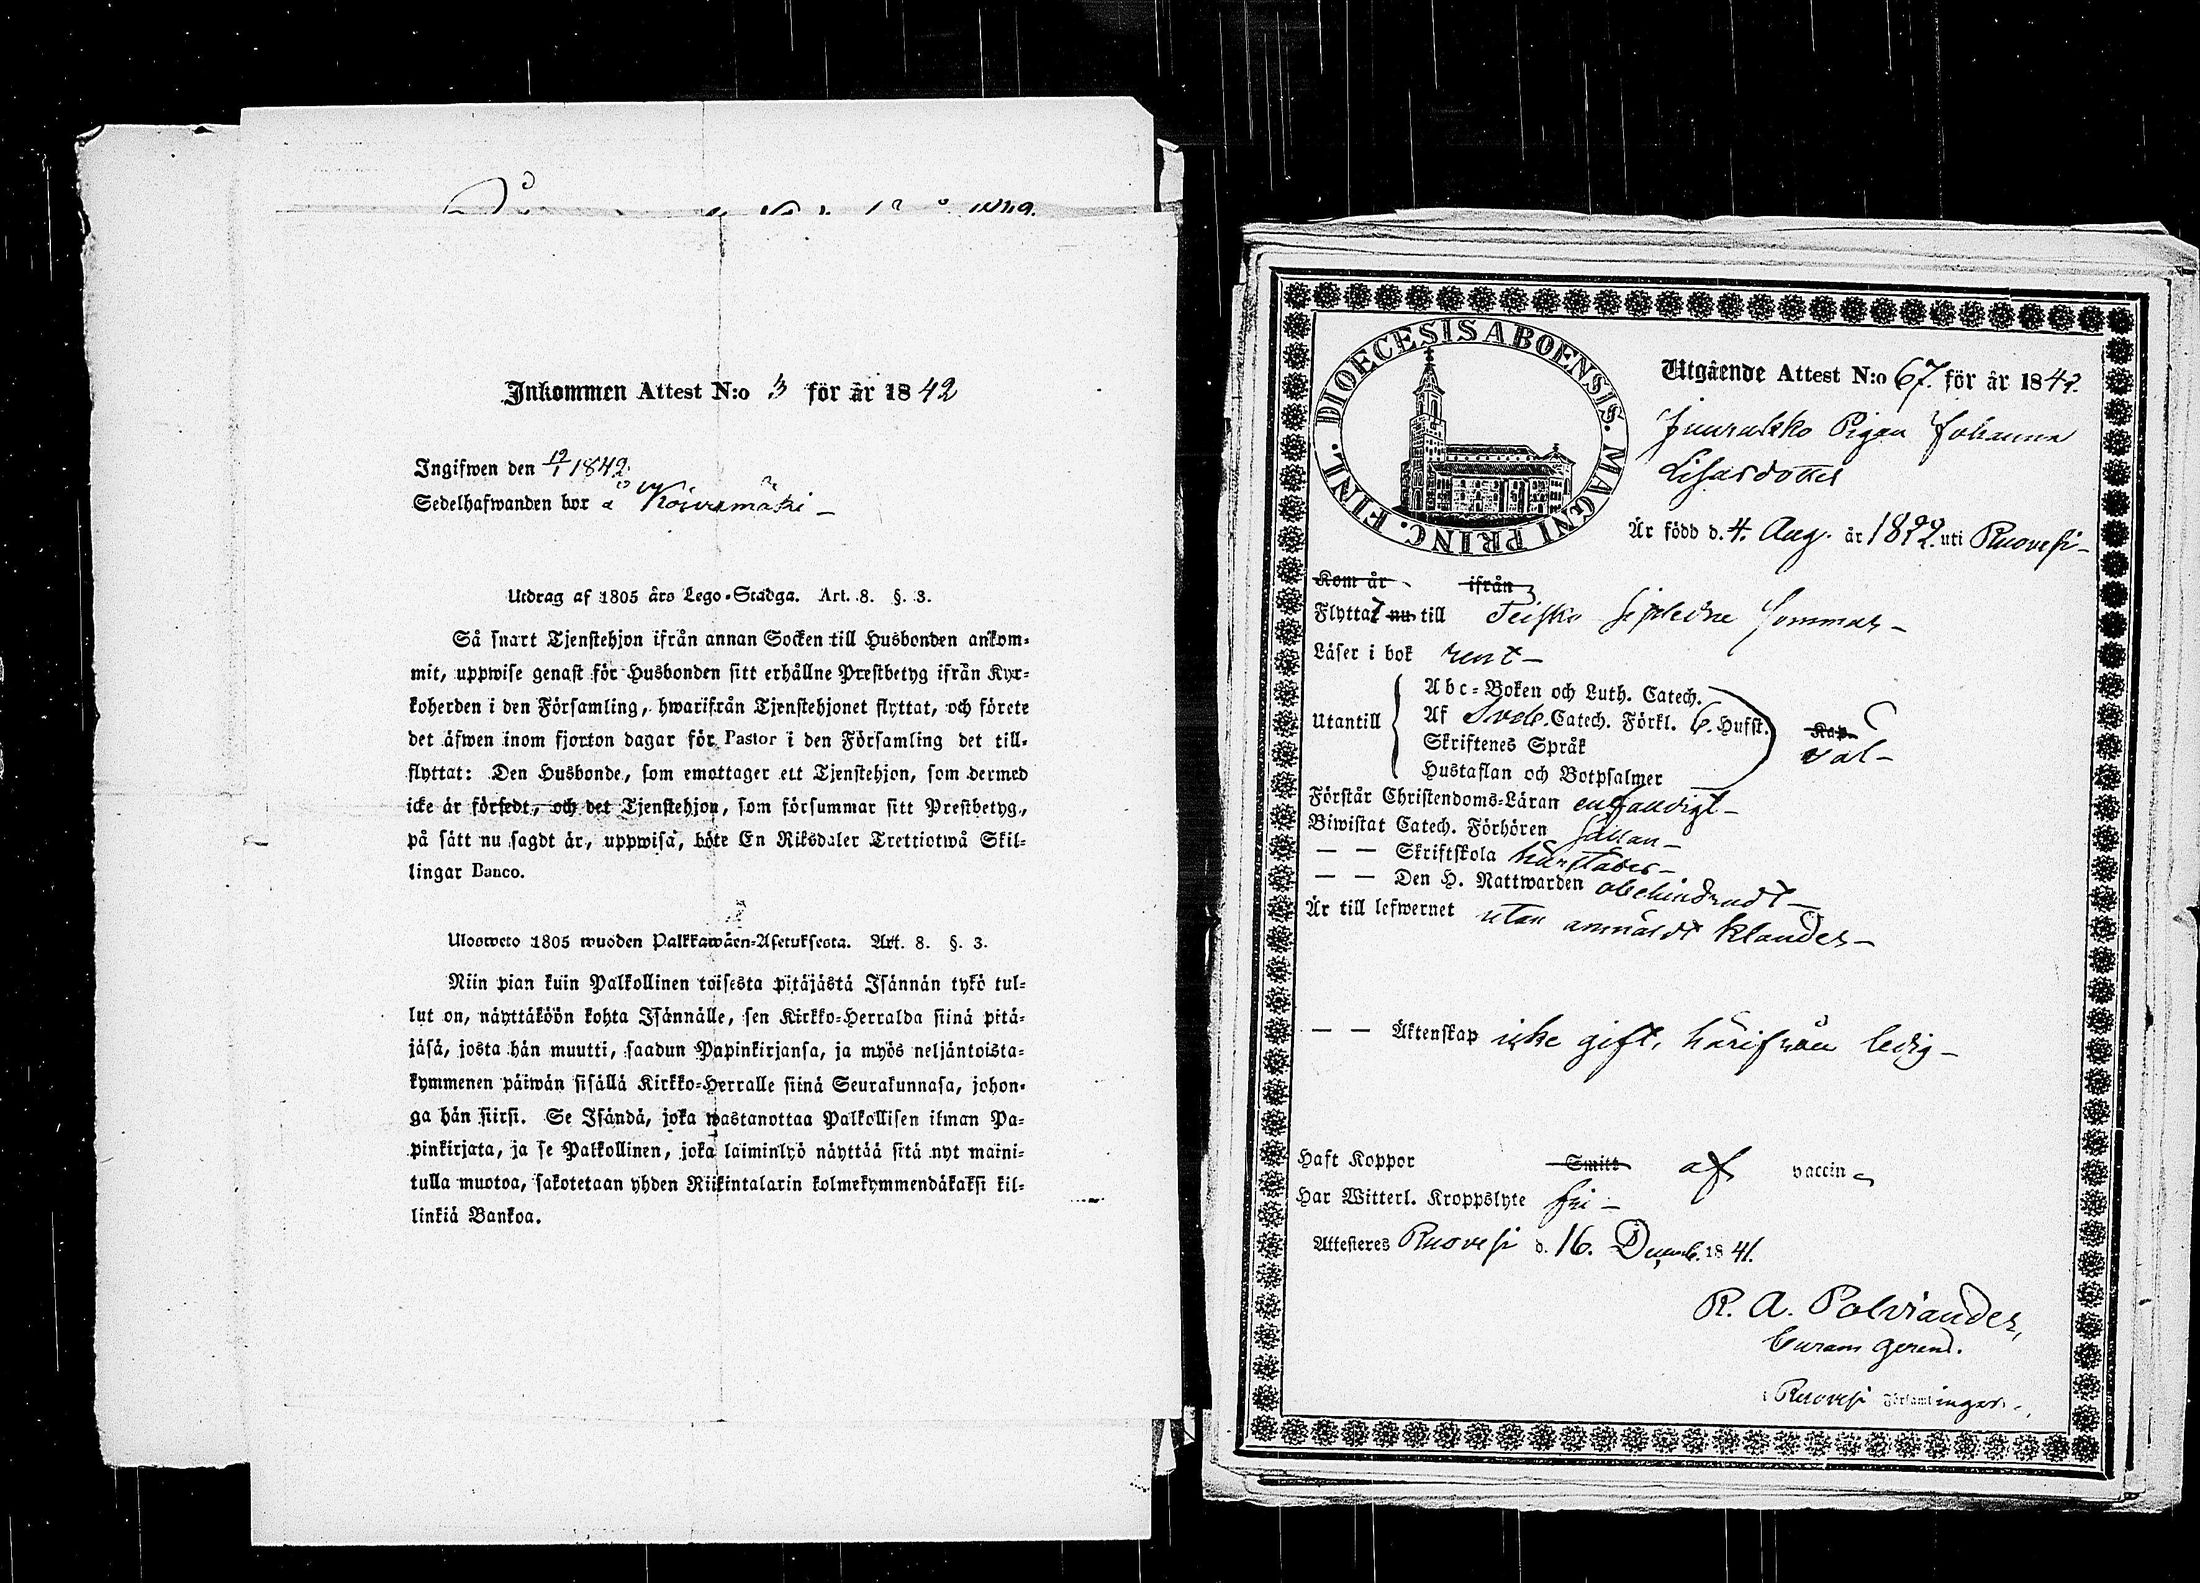 Inkommen Attest N:o 3 för år 1842
Ingifwen den 12/1 1842
Sedelhafwanden bor å Koivumäki –
Utdrag af 1805 års Lego-Stadga. Art. 8. §. 3.
Så snart Tjenstehjon ifrån annan Socken till Husbonden ankom-
mit, uppwise genast för Husbonden sitt erhållne Prestbetyg ifrån Kyr-
koherden i den Församling, hwarifrån Tjenstehjonet flyttat, och förete
det äfwen inom fjorton dagar för Pastor i den Församling det till-
flyttat: Den Husbonde, som emottager ett Tjenstehjon, som dermed
icke är försedt, och det Tjenstehjon, som försummar sitt Prestbetyg,
på sätt nu sagdt är, uppwisa, böte En Riksdaler Trettiotwå Skil-
lingar Banco.
Ulosweto 1805 wuoden Palkkawäen-Asetuksesta. Art. 8. §. 3.
Niin pian kuin Palkollinen toisesta pitäjästä Isännän tykö tul-
lut on, näyttäköön kohta Isännälle, sen Kirkko-Herralda siinä pitä-
jäsä, josta hän muutti, saadun Papinkirjansa, ja myös neljäntoista-
kymmenen päiwän sisällä Kirkko-Herralle siinä Seurakunnasa, johon-
ga hän siirsi. Se Isändä, joka wastanottaa Palkollisen ilman Pa-
pinkirjata, ja se Palkollinen, joka laiminlyö näyttää sitä nyt maini-
tulla muotoa, sakotetaan yhden Riikintalarin kolmekymmendäkaksi kil-
linkiä Bankoa.
DIOECESIS ABOENSIS. MAGNI PRINC. FINL.
Utgående Attest N:o 67. för år 1842.
Pigan Johanna
Lisasdotter
Är född d. 4. Aug. år 1822. uti Ruovesi –
Kom år ifrån
Flyttat nu till Teisko sommar –
Läser i bok rent –
Utantill
Abc-Boken och Luth. Catech.
Af Sveb. Catech. Förkl. 6. Hufst. Kap.
Skriftenes Språk
Hustaflan och Botpsalmer
väl –
Förstår Christendoms-Läran enfaldigt –
Biwistat Catech. Förhören sällan –
— — Skriftskola härstädes –
— — Den H. Nattwarden obehindradt –
Är till lefwernet utan anmäldt klander –
— — Äktenskap icke gift, härifrån ledig –
Haft Koppor Smitt af vaccin
Har Witterl. Kroppslyte fri –
Attesteres Ruovesi d. 16. Decemb. 1841.
R. A. Polviander,
Curam gerend.
i Ruovesi Församlingar.